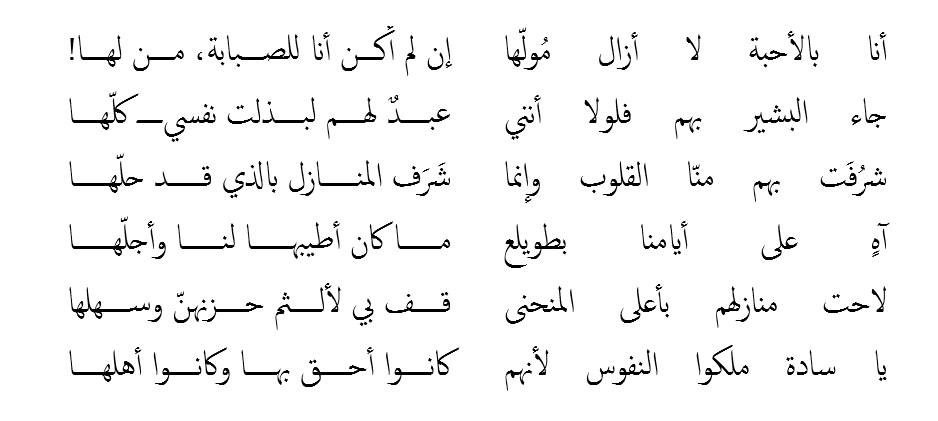 أنا بالأحبة لا أزال مُولّها إن لم أكن أنا للصبابة، من لها!
جاء البشير بهم فلولا أنني عبدٌ لهم لبذلت نفسي كلّها
شرُفَت بهم منّا القلوب وإنما شَرَف المنازل بالذي قد حلّها
آهٍ على أيامنا بطويلع ما كان أطيبها لنا وأجلّها
لاحت منازلهم بأعلى المنحنى قف بي لألثم حزنهنّ وسهلها
يا سادة ملكوا النفوس لأنهم كانوا أحق بها وكانوا أهلها